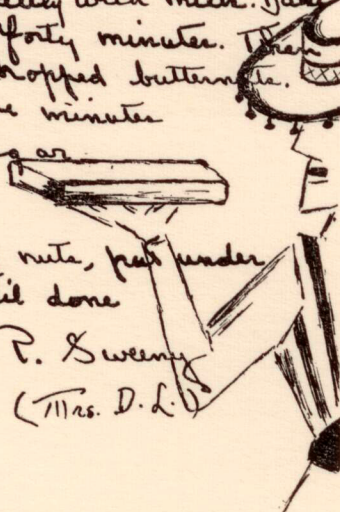 with milk. Bake
forty minutes. Then
chopped butternuts.
minutes
or
nuts, put under
til done
R. Sweeny
(Mrs. D. L.)